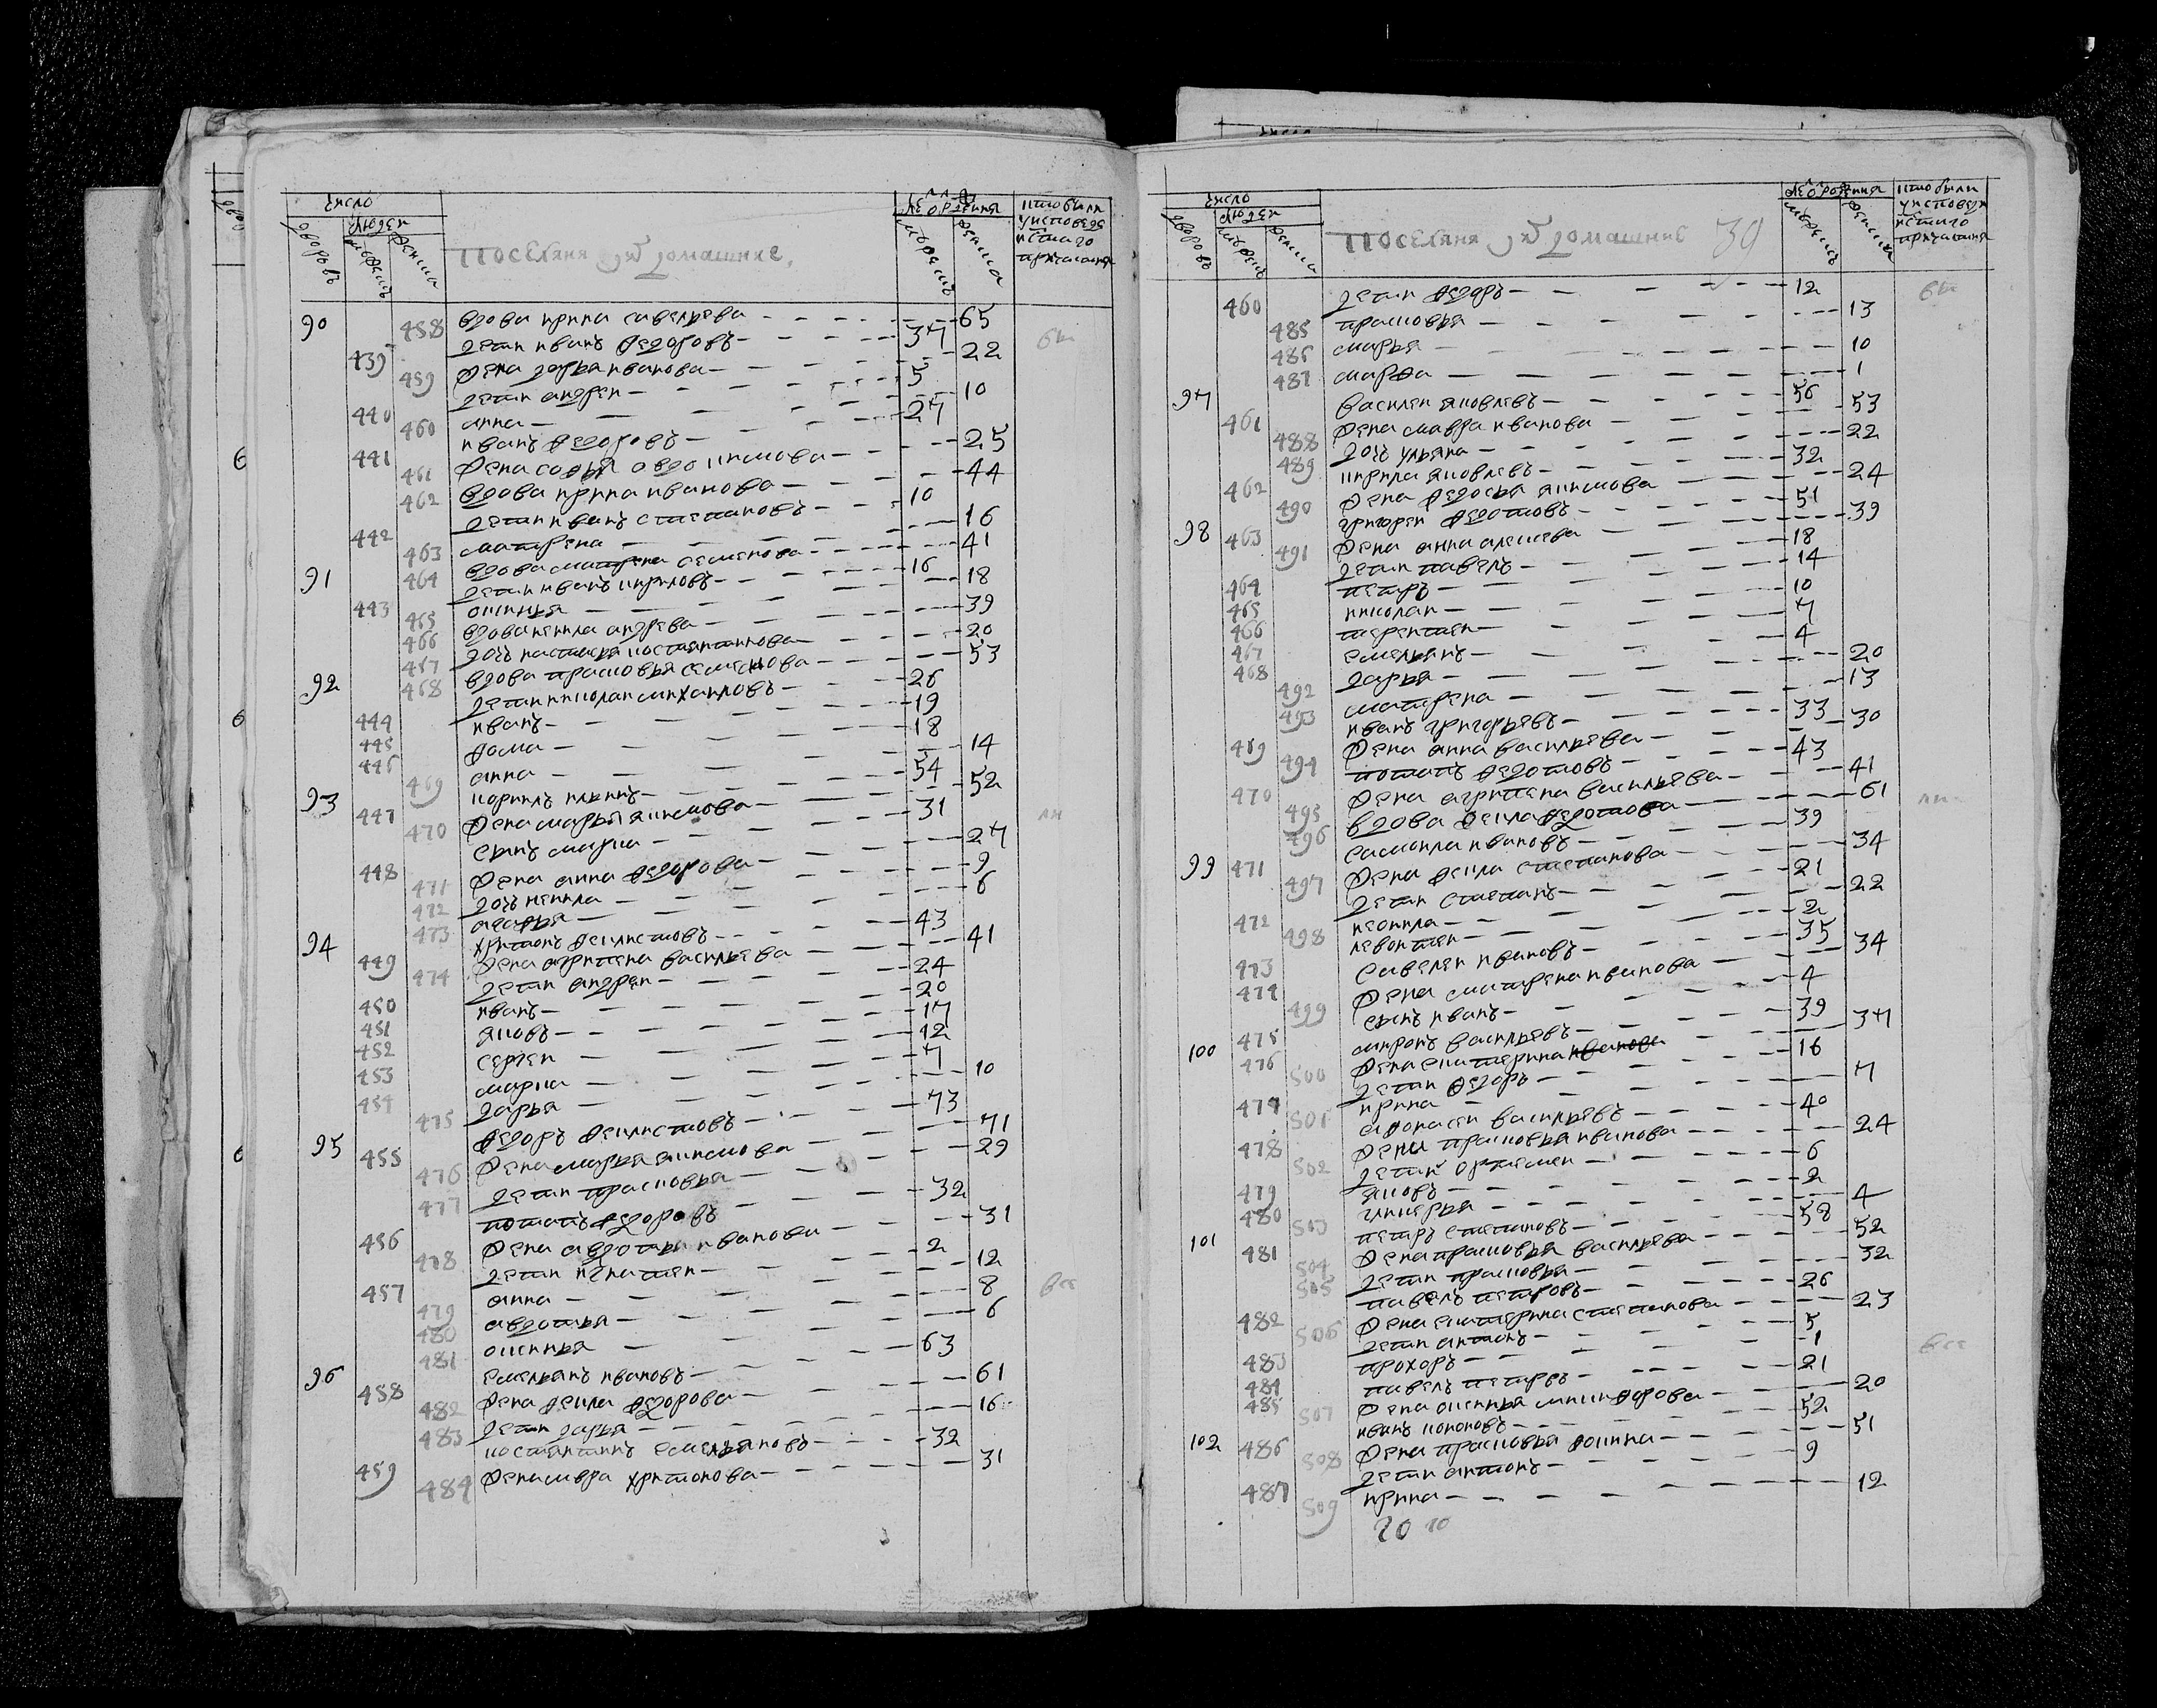 число
людей
дворовъ
мужескъ
женска
поселяня и ихъ домашние
лета от рождения
мужескъ
женска
кто были у исповеди и святаго причастия
90 458 вдова ирина савельева 65
439 дети иванъ федоровъ 37
459 жена дарья иванова 22
440 дети андрей 5
460 анна 10
441 иванъ федоровъ 27
461 жена софья овдокимова 25
462 вдова ирина иванова 44
442 дети иванъ степановъ 10
463 матрена 16
91 464 вдова матрена семенова 41
443 дети иванъ кириловъ 16
465 оксинья 18
466 вдова некила андрева 39
467 дочь настасья костянтинова 20
92 468 вдова прасковья семенова 53
444 дети николай михаиловъ 26
445 иванъ 19
446 фома 18
469 анна 14
93 447 корнилъ ильинъ 54
470 жена марья якимова 52
448 сынъ марка 31
471 жена анна федорова 27
472 дочь некила 9
473 агафья 6
94 449 харитонъ феклистовъ 43
474 жена агрипена васильева 41
450 дети андрей 24
451 иванъ 20
452 яковъ 17
453 сергей 12
454 марка 7
475 дарья 10
95 455 федоръ феклистовъ 73
476 жена марья якимова 71
477 дети прасковья 29
456 потапъ федоровъ 32
478 жена авдотья иванова 31
457 дети игнатей 2
479 анна 12
480 авдотья 8
481 оксинья 6
96 458 емельянъ ивановъ 63
482 жена фекла федорова 61
483 дети дарья 16
459 костянтинъ емельяновъ 32
484 жена мавра харитонова 31
число
людей
дворовъ
мужескъ
женска
поселяня и ихъ домашние 39
лета от рождения
мужескъ
женска
кто были у исповеди и святаго причастия
460 дети федоръ 12
485 прасковья 13
486 марья 10
487 марфа 1
97 461 василей яковлевъ 56
488 жена мавра иванова 53
489 дочь ульяна 22
462 кирила яковлевъ 32
490 жена федосья якимова 24
98 463 григорей федотовъ 51
491 жена анна алексева 39
464 дети павелъ 18
465 петръ 14
466 николай 10
467 терентей 7
468 емельянъ 4
492 дарья 20
493 матрена 13
469 иванъ григорьевъ 33
494 жена анна васильева 30
470 потапъ федотовъ 43
495 жена агрипена васильева 41
496 вдова фекла федотова 61
99 471 самойла ивановъ 39
497 жена фекла степанова 34
472 дети степанъ 21
498 неонила 22
473 левонтей 2
474 савелей ивановъ 35
499 жена матрена иванова 34
475 сынъ иванъ 4
100 476 миронъ васильевъ 39
500 жена екатерина иванова 37
477 дети федоръ 16
501 ирина 7
478 афонасей васильевъ 40
502 жена прасковья иванова 24
479 дети ортемей 6
480 яковъ 2
503 гликерья 4
101 481 петръ степановъ 58
504 жена прасковья васильева 52
505 дети прасковья 32
482 павелъ петровъ 26
506 жена екатерина степанова 23
483 дети антонъ 5
484 прохоръ 1
485 павелъ петровъ 21
507 жена оксинья микифорова 20
102 486 иванъ кононовъ 52
508 жена прасковья фокина 51
487 дети антонъ 9
509 ирина 12